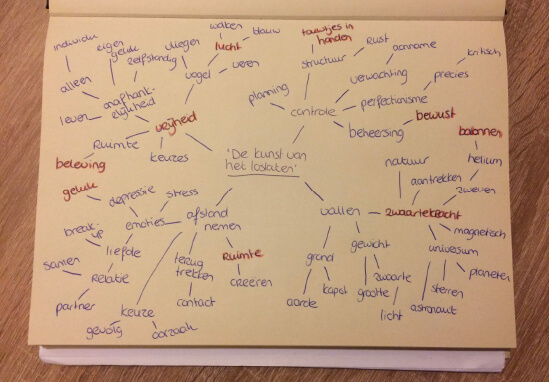 individu
eigen
geluk
zelfstandig
alleen
onafhank-
elijkheid
leven
vliegen
wolken
lucht
blauw
vogel
veren
vrijheid
Ruimte
beleving
keuzes
touwtjes in
handen
structuur
Rust
aanname
kritisch
verwachting
precies
planning
controle
perfectionisme
bewust
beheersing
'De kunst van
het loslaten'
ballonnen
natuur
helium
aantrekken
zweven
vallen
zwaartekracht
magnetisch
universum
planeten
sterren
astronaut
grond
gewicht
zwaarte
grootte
licht
kapot
aarde
geluk
depressie
stress
emoties
afstand
nemen
break-
up
liefde
samen
Relatie
partner
terug
trekken
Ruimte
creëren
contact
keuze
gevolg
oorzaak